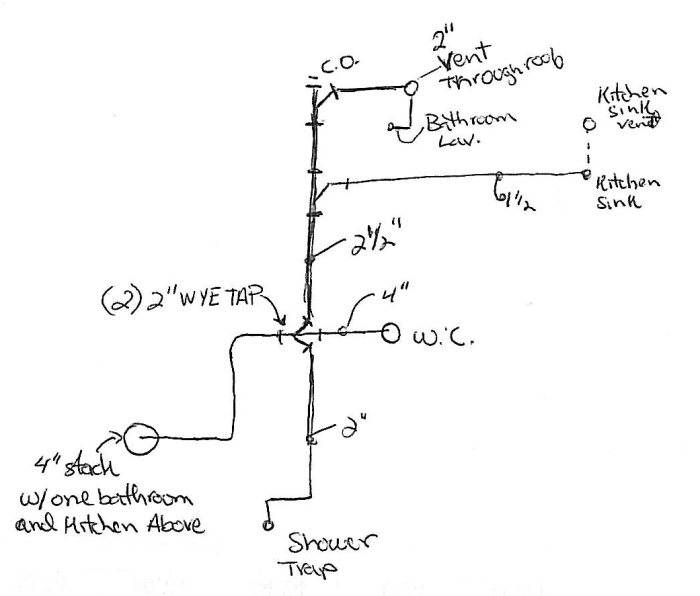 C.O.
2"
Vent
Through roob
Kitchen
sink
vent
Bathroom
Lav.
Kitchen
sink
1 1/2
2 1/2"
(2) 2" WYE TAP
4"
W.C.
2"
4" stack
w/ one bathroom
and Kitchen Above
Shower
Trap